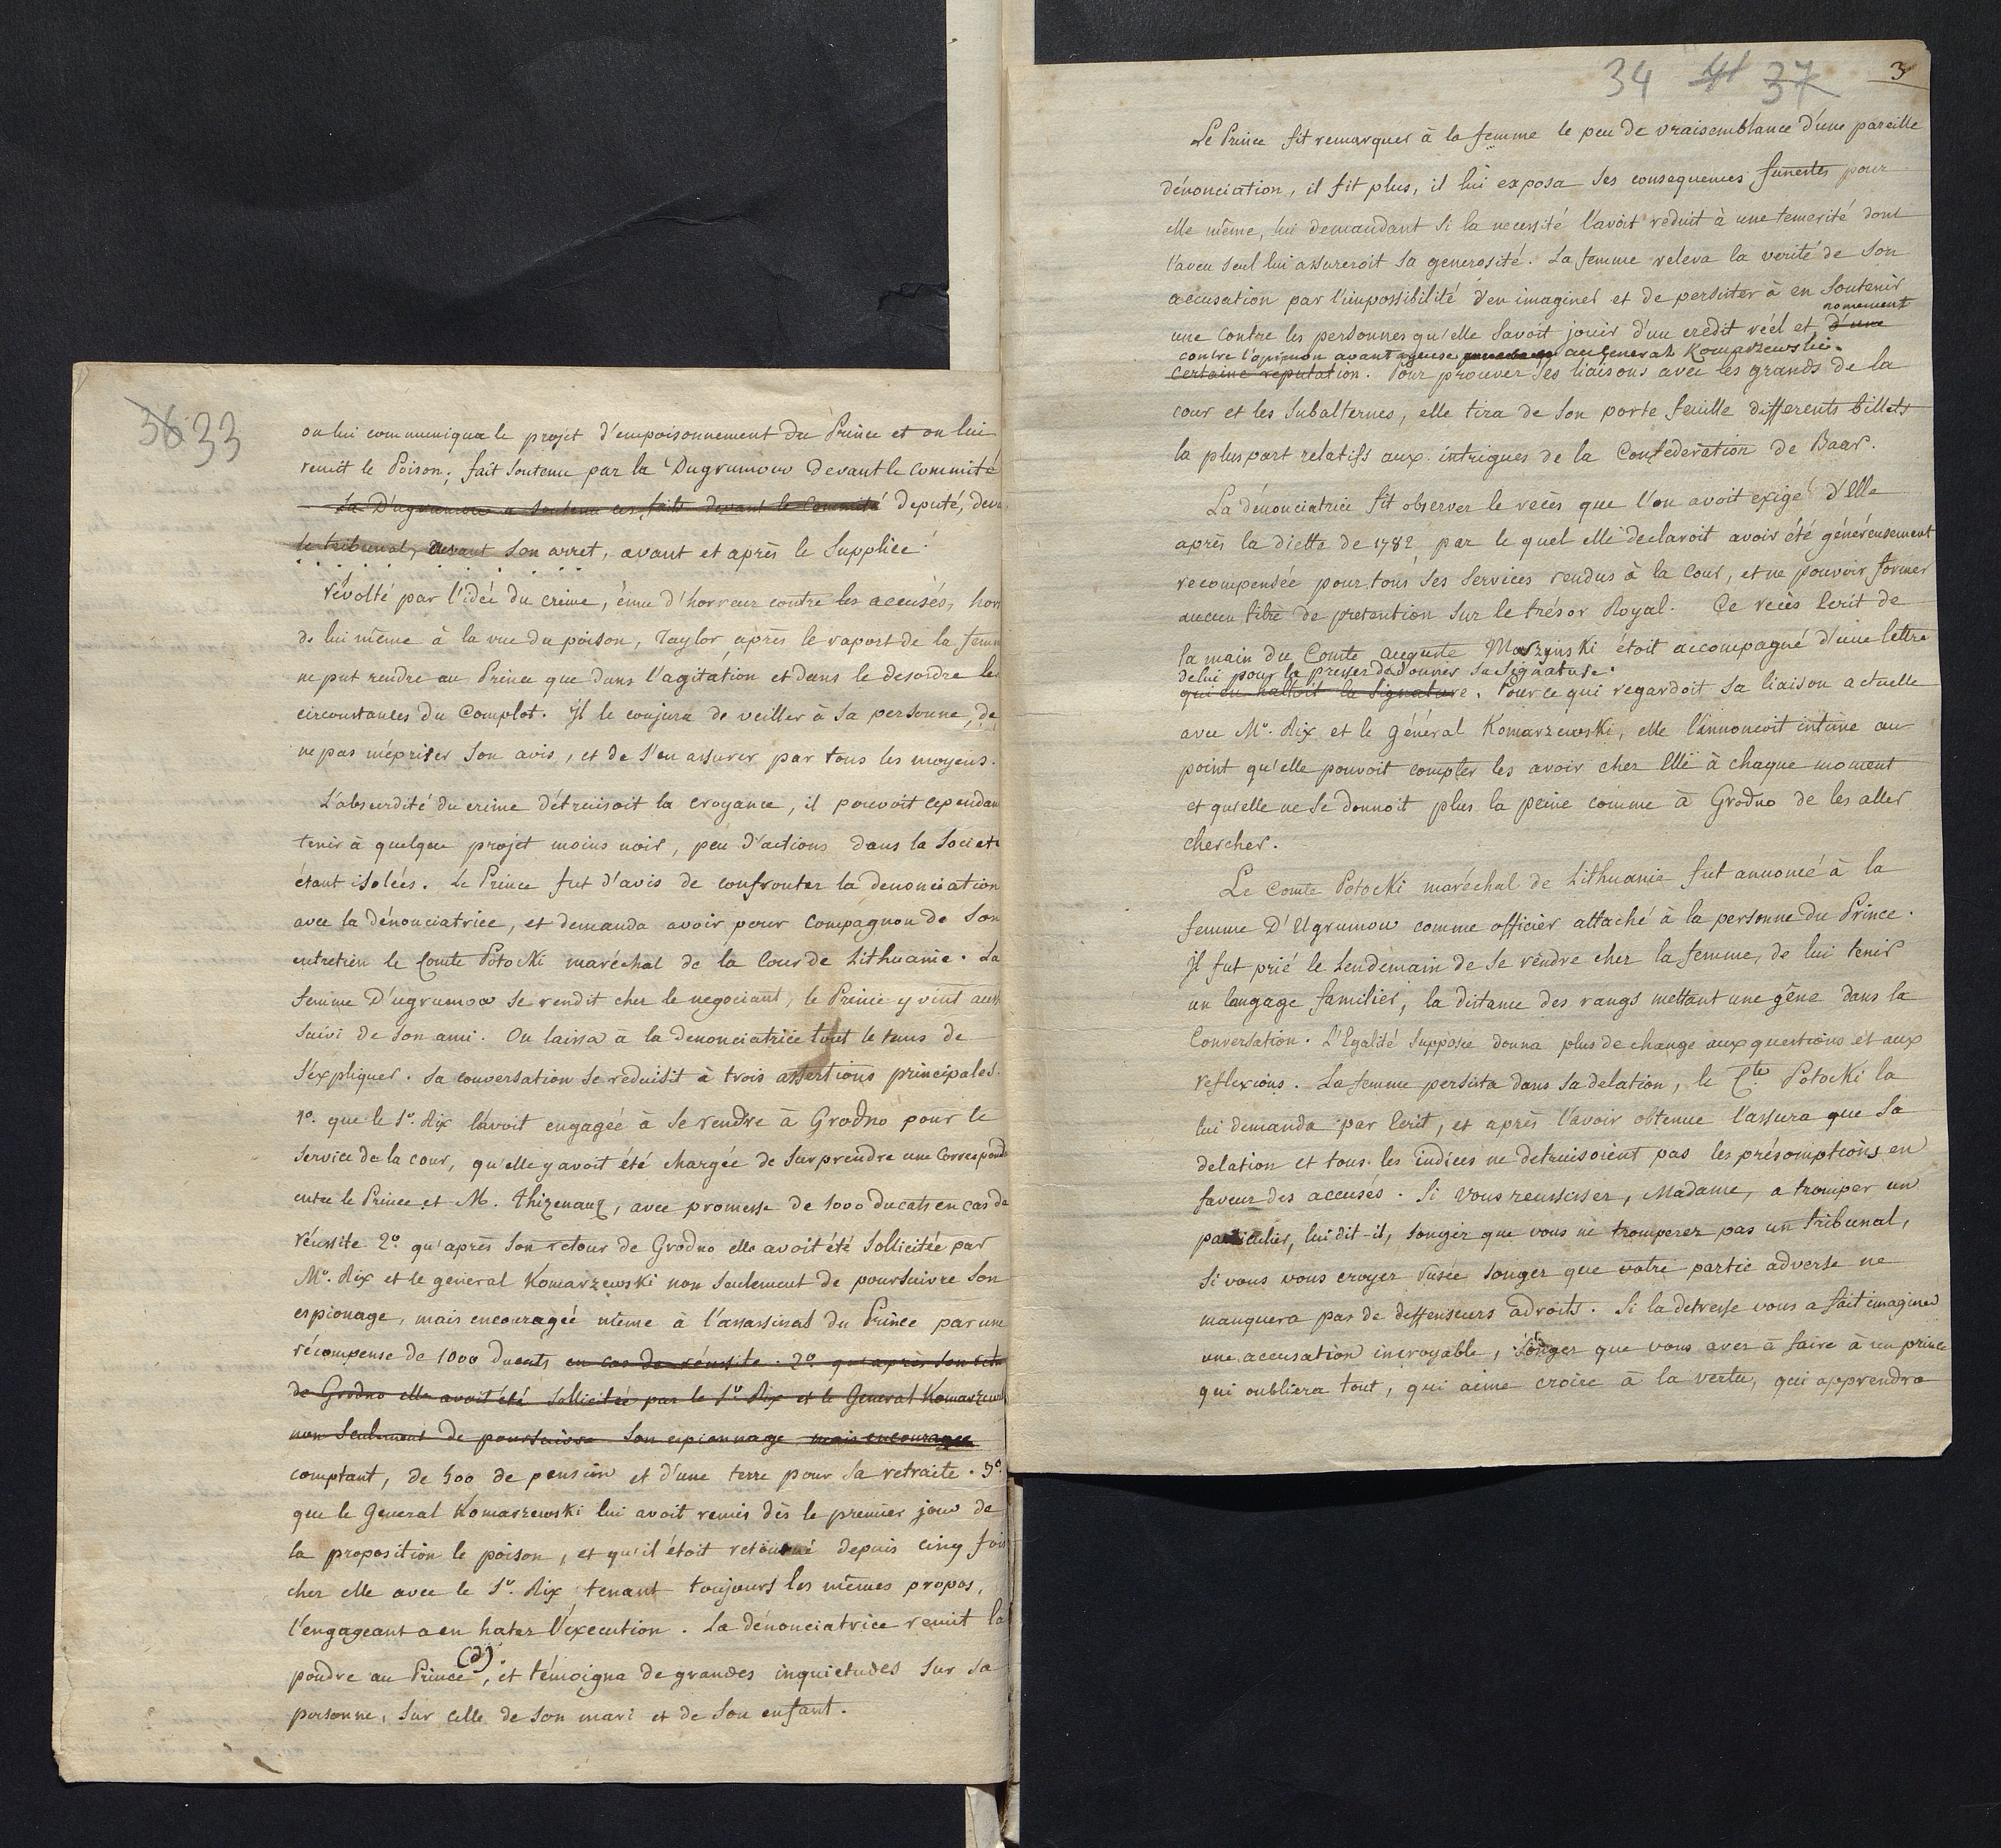 36 33
on lui communiqua le projet d'empoisonnement du Prince et on lui
remit le Poison; fait soutenu par la Dugrumow devant le committé
La D'ugrumow a soutenu ces faits devant le Committé deputé, deva
le tribunal, devant son arret, avant et après le supplice.
révolté par l'idée du crime, ému d'horreur contre les accusés, hor
de lui même à la vue du poison, Taylor après le raport de la femm
ne put rendre au Prince que dans l'agitation et dans le desordre les
circonstances du Complot. Il le conjura de veiller à sa personne, de
ne pas mépriser son avis, et de s'en assurer par tous les moyens.
L'absurdité du crime détruisoit la croyance, il pouvoit cependan
tenir à quelque projet moins noir, peu d'actions dans la Societé
étant isolées. Le Prince fut d'avis de confronter la denonciation
avec la dénonciatrice, et demanda avoir pour compagnon de son
entretien le Comte Potocki maréchal de la Cour de Lithuanie. La
femme D'ugrumow se rendit cher le negociant, le Prince y vint auss
suivi de son ami. On laissa à la denonciatrice tout le tems de
s'éxpliquer. Sa conversation se reduisit à trois assertions principales.
1º. que le Sr. Rix l'avoit engagée à se rendre à Grodno pour le
service de la cour, qu'elle y avoit été chargée de surprendre une Correspond
entre le Prince et M. Thizenauz, avec promesse de 1000 ducats en cas de
réussite 2º. qu'après son retour de Grodno elle avoit été sollicitée par
Mr. Rix et le general Komarzewski non seulement de poursuivre son
espionage, mais encouragée même à l'assassinat du Prince par une
récompense de 1000 ducats en cas de réussite. 2º. qu'après son retou
de Grodno elle avoit été sollicitée par le Sr. Rix et le General Komarzews
non seulement de poursuivre son espionnage mais encouragée
comptant, de 500 de pension et d'une terre pour sa retraite. 3º.
que le General Komarzewski lui avoit remis dès le premier jour de
la proposition le poison, et qu'il étoit retourné depuis cinq fois
cher elle avec le Sr. Rix tenant toujours les mêmes propos,
l'engageant a en hater l'éxecution. La dénonciatrice remit la
poudre au Prince (d), et témoigna de grandes inquietudes sur sa
personne, sur celle de son mari et de son enfant.
34 41 37 3
Le Prince fit remarquer à la femme le peu de vraisemblance d'une pareille
dénonciation, il fit plus, il lui exposa ses consequences funestes pour
elle même, lui demandant si la necessité l'avoit réduit à une temerité dont
l'aveu seul lui assureroit sa generosité. La femme releva la verité de son
accusation par l'impossibilité d'en imaginer et de persister à en soutenir
une contre les personnes qu'elle savoit jouir d'un crédit réel et d'une nomement
contre l'opinion avantageuse au General Komarzewski.
certaine reputation. Pour prouver ses liaisons avec les grands de la
cour et les subalternes, elle tira de son porte feuille differents billets
la pluspart relatifs aux intrigues de la Confederation de Baar.
La dénonciatrice fit observer le recès que l'on avoit exigé d'Elle
après la diette de 1782 par le quel elle declaroit avoir été généreusement
recompensée pour tous ses services rendus à la Cour, et ne pouvoir former
aucun titre de pretention sur le trésor Royal. Ce recès écrit de
la main du Comte auguste Moszynski étoit accompagné d'une lettre
de lui pour la presser de donner sa signature.
qui en hattoit la signature. Pour ce qui regardoit sa liaison actuelle
avec Mr. Rix et le général Komarzewski, elle l'annoncoit intime au
point qu'elle pouvoit compter les avoir cher Elle à chaque moment
et qu'elle ne se donnoit plus la peine comme à Grodno de les aller
chercher.
Le Comte Potocki maréchal de Lithuanie fut annoncé à la
femme D'Ugrumow comme officier attaché à la personne du Prince.
Il fut prié le lendemain de se rendre cher la femme, de lui tenir
un langage familier, la distance des rangs mettant une gêne dans la
Conversation. L'Egalité supposée donna plus de change aux questions et aux
reflexions. La femme persista dans sa delation, le Cte Potocki la
lui demanda par Ecrit, et après l'avoir obtenue l'assura que sa
delation et tous les indices ne detruisoient pas les présomptions en
faveur des accusés. Si vous reussisser, Madame, a tromper un
particulier, lui dit-il, songez que vous ne tromperez pas un tribunal,
si vous vous croyer rusée songer que votre partie adverse ne
manquera pas de deffenseurs adroits. Si la detresse vous a fait imaginer
une accusation incroyable, songer que vous aver à faire à un prince
qui oubliera tout, qui aime croire à la vertu, qui apprendra